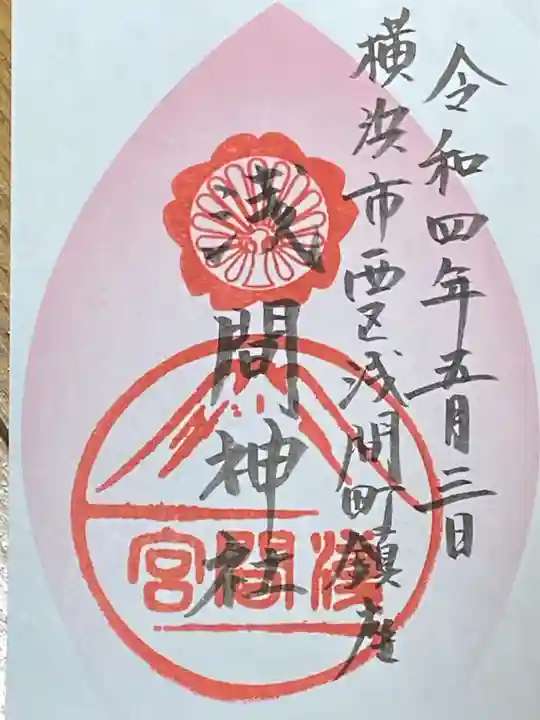 令和四年五月三日
横浜市西区浅間町鎮座
浅間神社
淺間宮